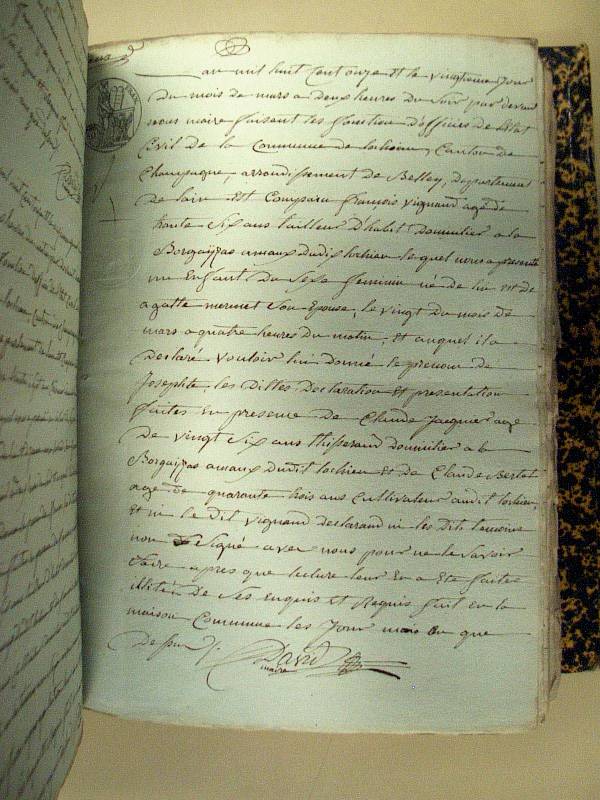 an mil huit cent onze et le vingtieme jour
du mois de mars a deux heures du soir par devant
nous maire faisant les fonction d'officier de l'Etat
Civil de la Commune de lochieu, Canton de
Champagne, arrondissement de Belley, departement
de l'ain est Comparu françois vignand agé de
trante six ans tailleur d'habit domicilier a
amaux dudis lochieu lequel nous a presenté
un Enfant du sexe feminin né de lui et de
agatte mermet son Epouse, le vingt du mois de
mars a quatre heures du matin, et auquel il a
declaré vouloir lui donné le prenom de
Josephte, les dittes declaration et presentation
faites en presence de Claude Jacquier agé
de vingt six ans thisserand domicilier a
amaux dudit lochieu et de Claude Bertet
agé de quarante trois ans Cultivateur audit lochieu,
et ni le dit vignand declarand ni les dits temoins
non signé avec nous pour ne le savoir
faire apres que lecture leur en a Ete faite
de ses enquis et Requis fait en la
maison Commune les Jour mois an que
dessus
David
maire